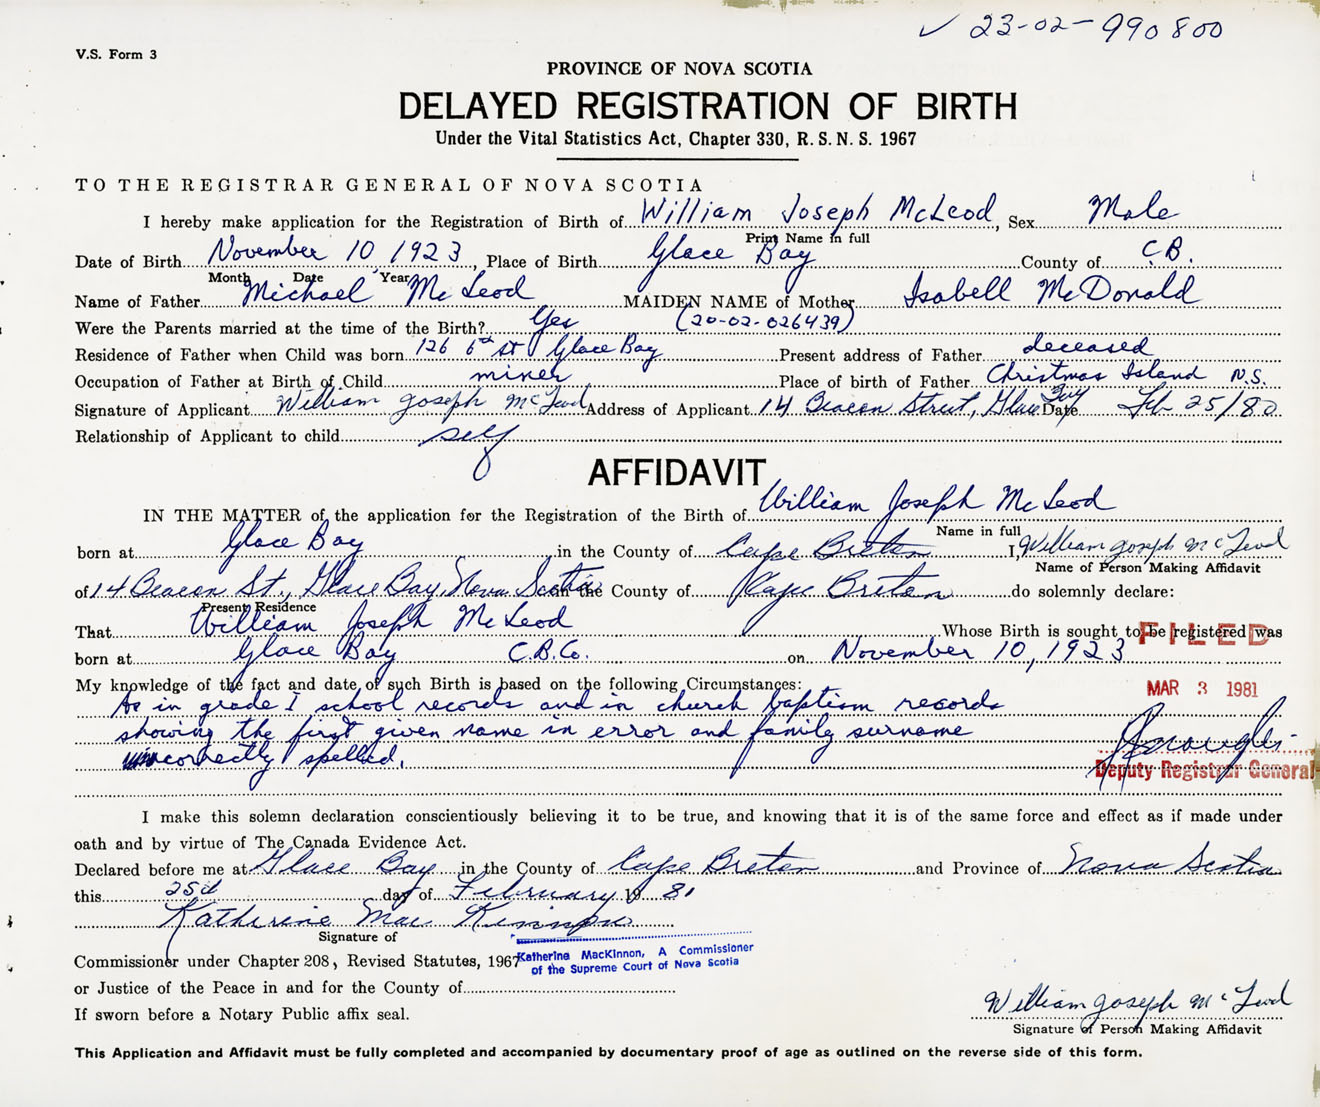 ✓ 23-02-990800
V.S. Form 3
PROVINCE OF NOVA SCOTIA
DELAYED REGISTRATION OF BIRTH
Under the Vital Statistics Act, Chapter 330, R. S. N. S. 1967
TO THE REGISTRAR GENERAL OF NOVA SCOTIA
I hereby make application for the Registration of Birth of William Joseph McLeod, Sex Male
Print Name in full
Date of Birth November 10 1923, Place of Birth Glace Bay County of C.B.
Month Date Year
Name of Father Michael McLeod MAIDEN NAME of Mother Isabell McDonald
Were the Parents married at the time of the Birth? Yes (20-02-026439)
Residence of Father when Child was born 126 6th St Glace Bay Present address of Father deceased
Occupation of Father at Birth of Child miner Place of birth of Father Christmas Island N.S.
Signature of Applicant William Joseph McLeod Address of Applicant 14 Beacon Street, Glace Bay Date Feb 25/80
Relationship of Applicant to child self
AFFIDAVIT
IN THE MATTER of the application for the Registration of the Birth of William Joseph McLeod
Name in full
born at Glace Bay in the County of Cape Breton I, William Joseph McLeod
Name of Person Making Affidavit
of 14 Beacon St., Glace Bay, Nova Scotia in the County of Cape Breton do solemnly declare:
Present Residence
That William Joseph McLeod Whose Birth is sought to be registered was
FILED
born at Glace Bay C.B.Co. on November 10, 1923
My knowledge of the fact and date of such Birth is based on the following Circumstances:
MAR 3 1981
As in grade I school records and in church baptism records
showing the first given name in error and family surname
incorrectly spelled.
Deputy Registrar General
I make this solemn declaration conscientiously believing it to be true, and knowing that it is of the same force and effect as if made under
oath and by virtue of The Canada Evidence Act.
Declared before me at Glace Bay in the County of Cape Breton and Province of Nova Scotia
this 25th day of February 19 81
Katherine MacKinnon
Signature of
Katherine MacKinnon, A Commissioner
of the Supreme Court of Nova Scotia
Commissioner under Chapter 208, Revised Statutes, 1967
or Justice of the Peace in and for the County of
If sworn before a Notary Public affix seal.
William Joseph McLeod
Signature of Person Making Affidavit
This Application and Affidavit must be fully completed and accompanied by documentary proof of age as outlined on the reverse side of this form.